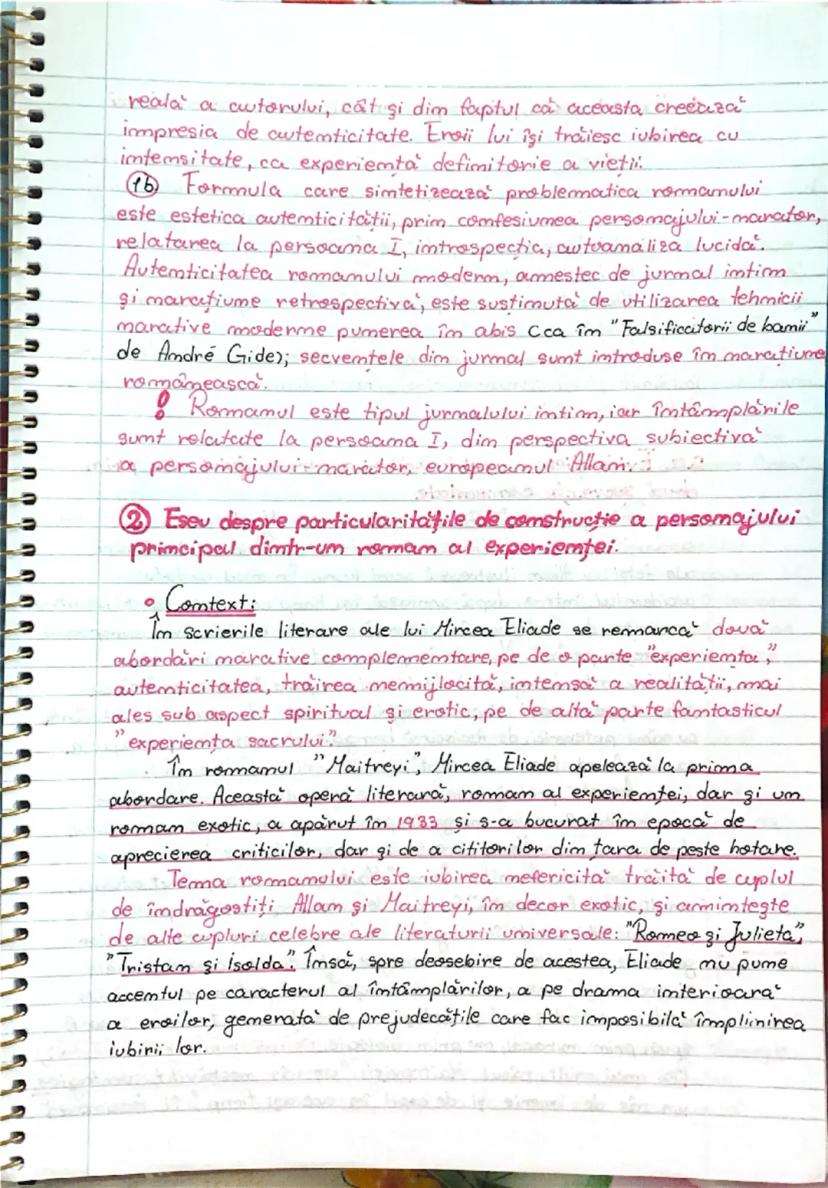 reală a autorului, cât și din faptul că aceasta creează
impresia de autenticitate. Eroii lui își trăiesc iubirea cu
intensitate, ca experiență definitorie a vieții.
1b Formula care sintetizează problematica romanului
este estetica autenticității, prin confesiunea personajului-narator,
relatarea la persoana I, introspecția, autoanaliza lucidă.
Autenticitatea romanului modern, amestec de jurnal intim
și narațiune retrospectivă, este susținută de utilizarea tehnicii
narative moderne punerea în abis (ca în "Falsificatorii de bani"
de André Gide); secvențele din jurnal sunt introduse în narațiunea
românească.
! Romanul este tipul jurnalului intim, iar întâmplările
sunt relatate la persoana I, din perspectiva subiectivă
a personajului-narator, europeanul Allan.
2 Eseu despre particularitățile de construcție a personajului
principal dintr-un roman al experienței.
• Context:
În scrierile literare ale lui Mircea Eliade se remarcă două
abordări narative complementare, pe de o parte "experiența",
autenticitatea, trăirea nemijlocită, intensă a realității, mai
ales sub aspect spiritual și erotic, pe de altă parte fantasticul
"experiența sacrului".
În romanul "Maitreyi", Mircea Eliade apelează la prima
abordare. Această operă literară, roman al experienței, dar și un
roman exotic, a apărut în 1933 și s-a bucurat în epocă de
aprecierea criticilor, dar și de a cititorilor din țara de peste hotare.
Tema romanului este iubirea nefericită trăită de cuplul
de îndrăgostiți Allan și Maitreyi, în decor exotic, și amintește
de alte cupluri celebre ale literaturii universale: "Romeo și Julieta",
"Tristan și Isolda". Însă, spre deosebire de acestea, Eliade nu pune
accentul pe caracterul al întâmplărilor, a pe drama interioară
a eroilor, generată de prejudecățile care fac imposibilă împlinirea
iubirii lor.